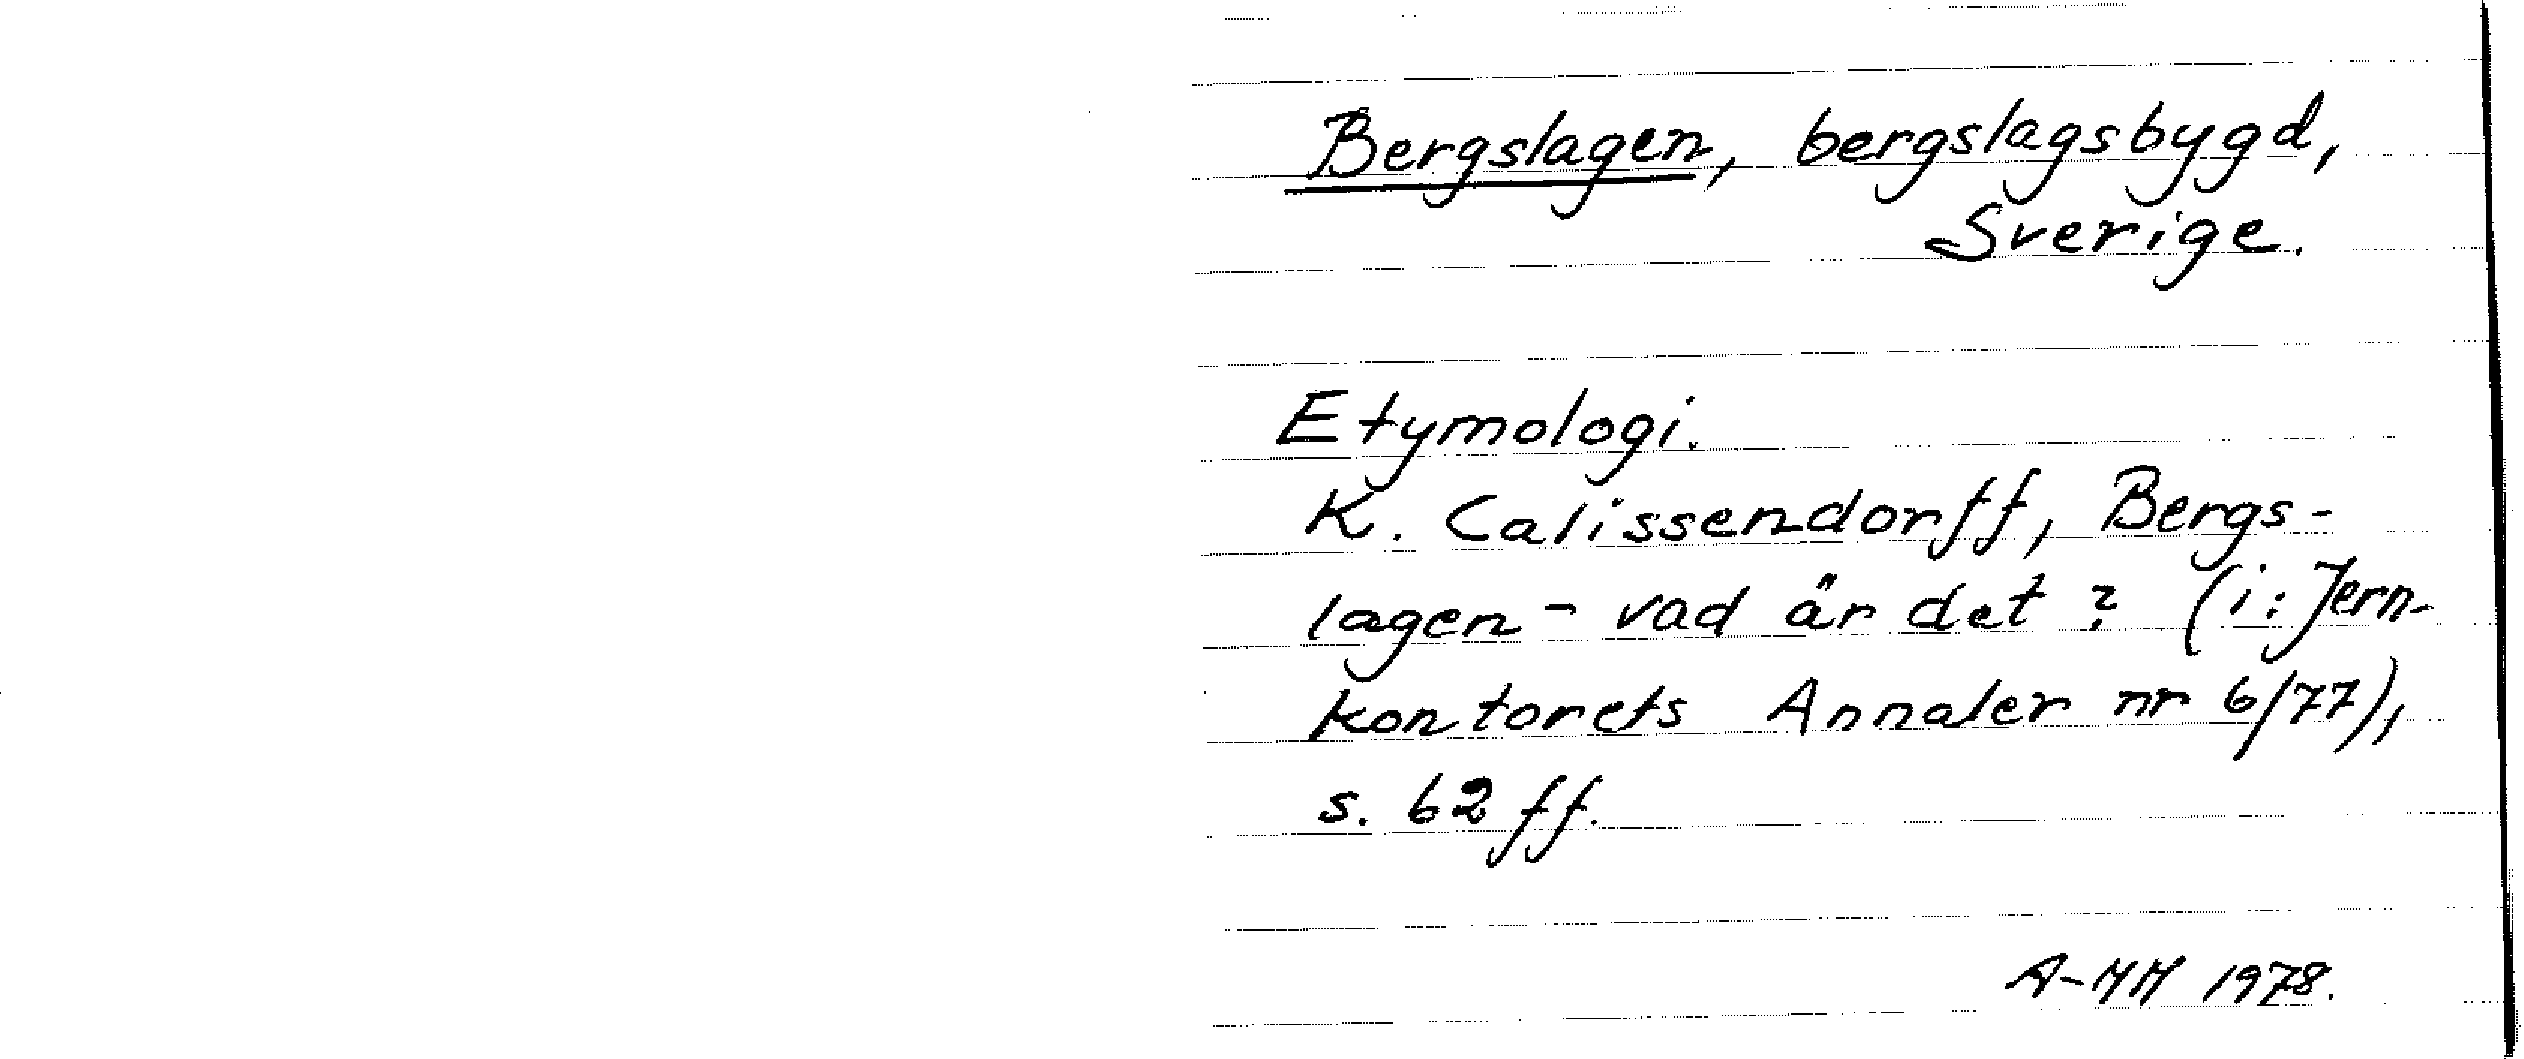 Bergslagen, bergslagsbygd,
Sverige.
Etymologi.
K. Calissendorff, Bergs-
lagen - vad är det? (i: Jern-
kontorets Annaler nr 6/77),
s. 62 ff.
A-MM 1978.